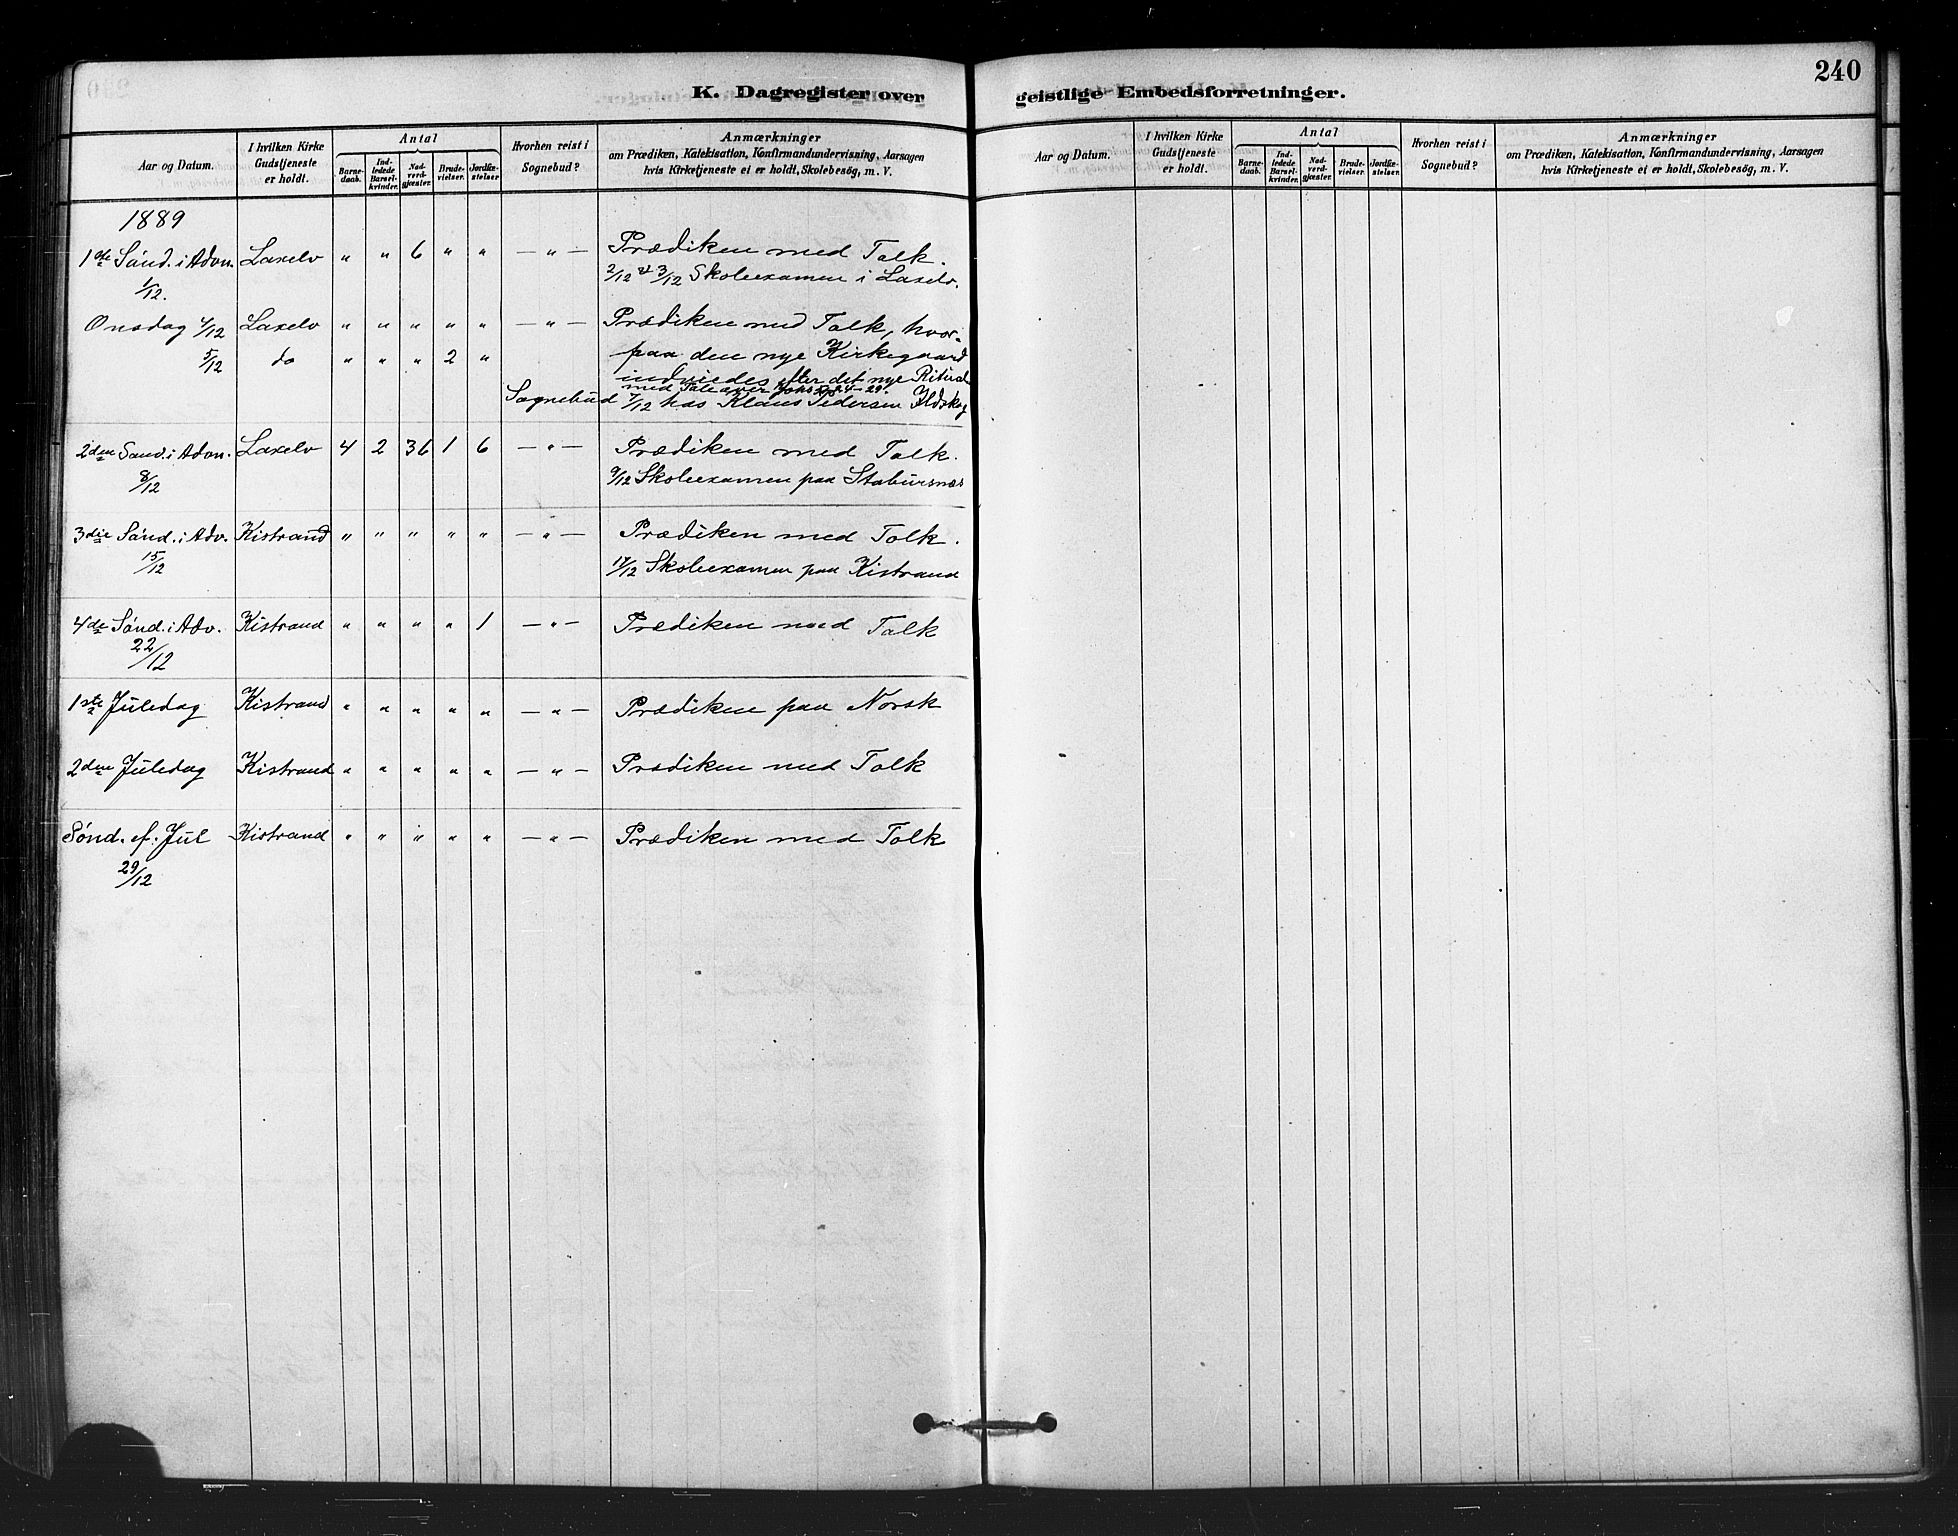 K. Dagregister over geistlige Embedsforretninger.
240
Aar og Datum.
I hvilken Kirke Gudstjeneste er holdt.
Antal
Barne-daab.
Ind-ledede Barsel-kvinder.
Nad-verd-gjæster.
Brude-vielser.
Jordfæ-stelser
Hvorhen reist i Sognebud?
Anmærkninger
om Prædiken, Katekisation, Konfirmandundervisning, Aarsagen
hvis Kirketjeneste ei er holdt, Skolebesög, m. V.
1889
1ste Sönd. i Adon. Laxelv " " 6 " " — " — Prædiken med Tolk.
1/12. 2/12 & 3/12 Skoleexamen i Laxelv.
Onsdag 4/12 Laxelv " " " " " — " — Prædiken med Tolk, hvor-
5/12 do " " " 2 " paa den nye Kirkegaard
indviedes efter det nye Ritual
med Tale over Johs 4-29.
Sognebud 7/12 hos Klaus Pedersen Ildskog
2den Sönd. i Advn. Laxelv 4 2 36 1 6 — " — Prædiken med Tolk.
8/12 9/12 Skoleexamen paa Stabursnæs
3die Sönd. i Adv. Kistrand " " " " " — " — Prædiken med Tolk.
15/12 17/12 Skoleexamen paa Kistrand
4de Sönd. i Adv. Kistrand " " " " 1 — " — Prædiken med Tolk
22/12
1ste Juledag Kistrand " " " " " — " — Prædiken paa Norsk
2den Juledag Kistrand " " " " " — " — Prædiken med Tolk
Sønd. ef. Jul Kistrand " " " " " — " — Prædiken med Tolk
29/12
Aar og Datum.
I hvilken Kirke Gudstjeneste er holdt.
Antal
Barne-daab.
Ind-ledede Barsel-kvinder.
Nad-verd-gjæster.
Brude-vielser.
Jordfæ-stelser
Hvorhen reist i Sognebud?
Anmærkninger
om Prædiken, Katekisation, Konfirmandundervisning, Aarsagen
hvis Kirketjeneste ei er holdt, Skolebesög, m. V.